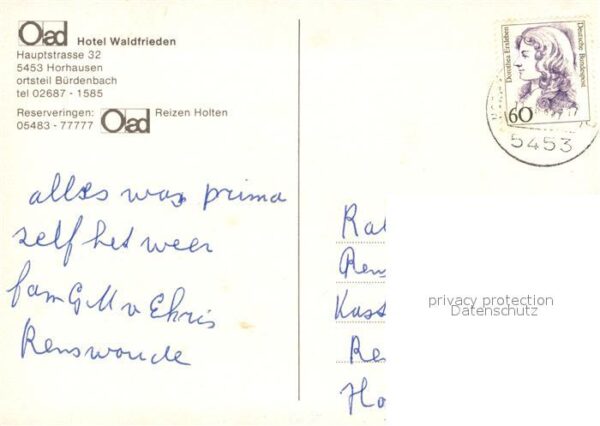 Oad Hotel Waldfrieden
Hauptstrasse 32
5453 Horhausen
ortsteil Bürdenbach
tel 02687 - 1585
Reserveringen: Oad Reizen Holten
05483 - 77777
Dorothea Erxleben
Deutsche Bundespost
60
5453
alles was prima
zelf het weer
fam G M v Ehris
Renswoude
Ra
Ren
Kass
Re
Ho
privacy protection
Datenschutz